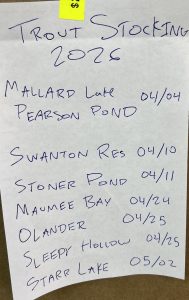 TROUT STOCKING
2026
MALLARD Lake 04/04
PEARSON POND
SWANTON RES 04/10
STONER POND 04/11
MAUMEE BAY 04/24
OLANDER 04/25
SLEEPY HOLLOW 04/25
STARR LAKE 05/02